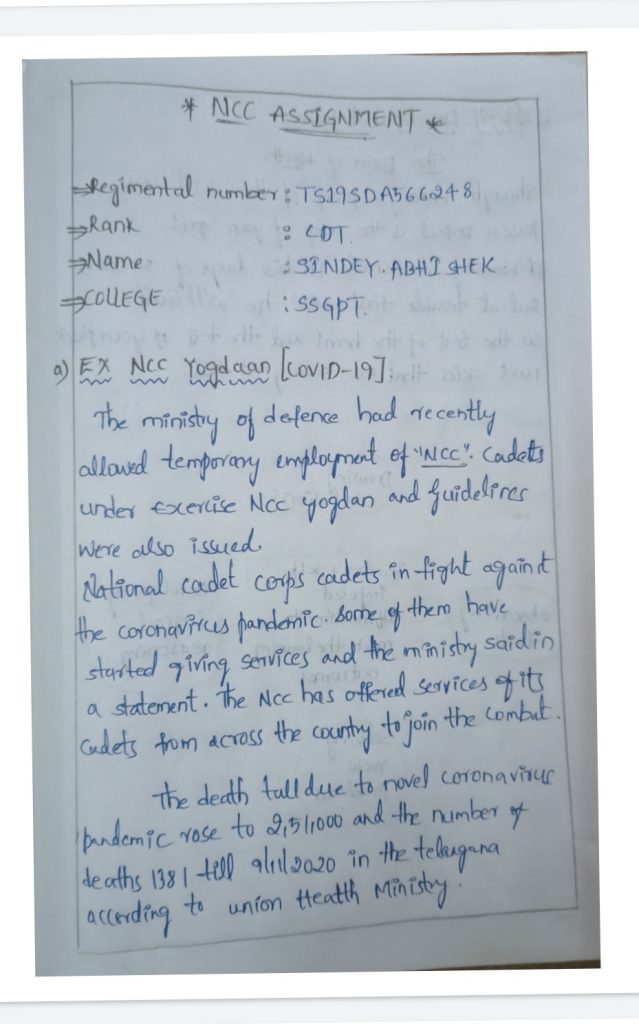 * NCC ASSIGNMENT *
⇒Regimental number : TS19SDA566248
⇒Rank : CDT.
⇒Name : SINDEY. ABHISHEK
⇒COLLEGE : SSGPT.
a) EX NCC Yogdaan [COVID-19].
The ministry of defence had recently
allowed temporary employment of "NCC". Cadets
under Exercise NCC yogdan and guidelines
were also issued.
National cadet corps cadets in fight against
the coronavirus pandemic. Some of them have
started giving services and the ministry said in
a statement. The NCC has offered services of its
Cadets from across the country to join the combat.
The death tall due to novel coronavirus
pandemic rose to 2,51,000 and the number of
deaths 1381 till 9/11/2020 in the telangana
according to union Heatth Ministry.